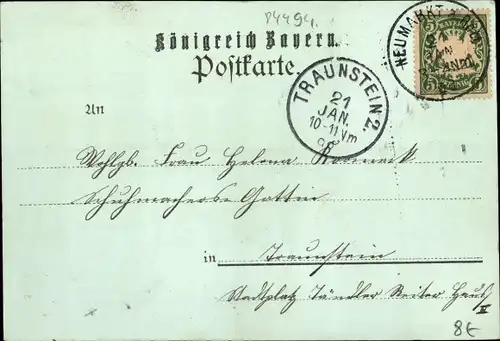 P4494.
Königreich Bayern.
Postkarte.
NEUMARKT
TRAUNSTEIN 2.
21
JAN.
10-11 Vm
An
Wohlgb. Frau Helena
Schuhmachers Gattin
in Traunstein
Stadtplatz Tändler Reiter Haus
II
8€